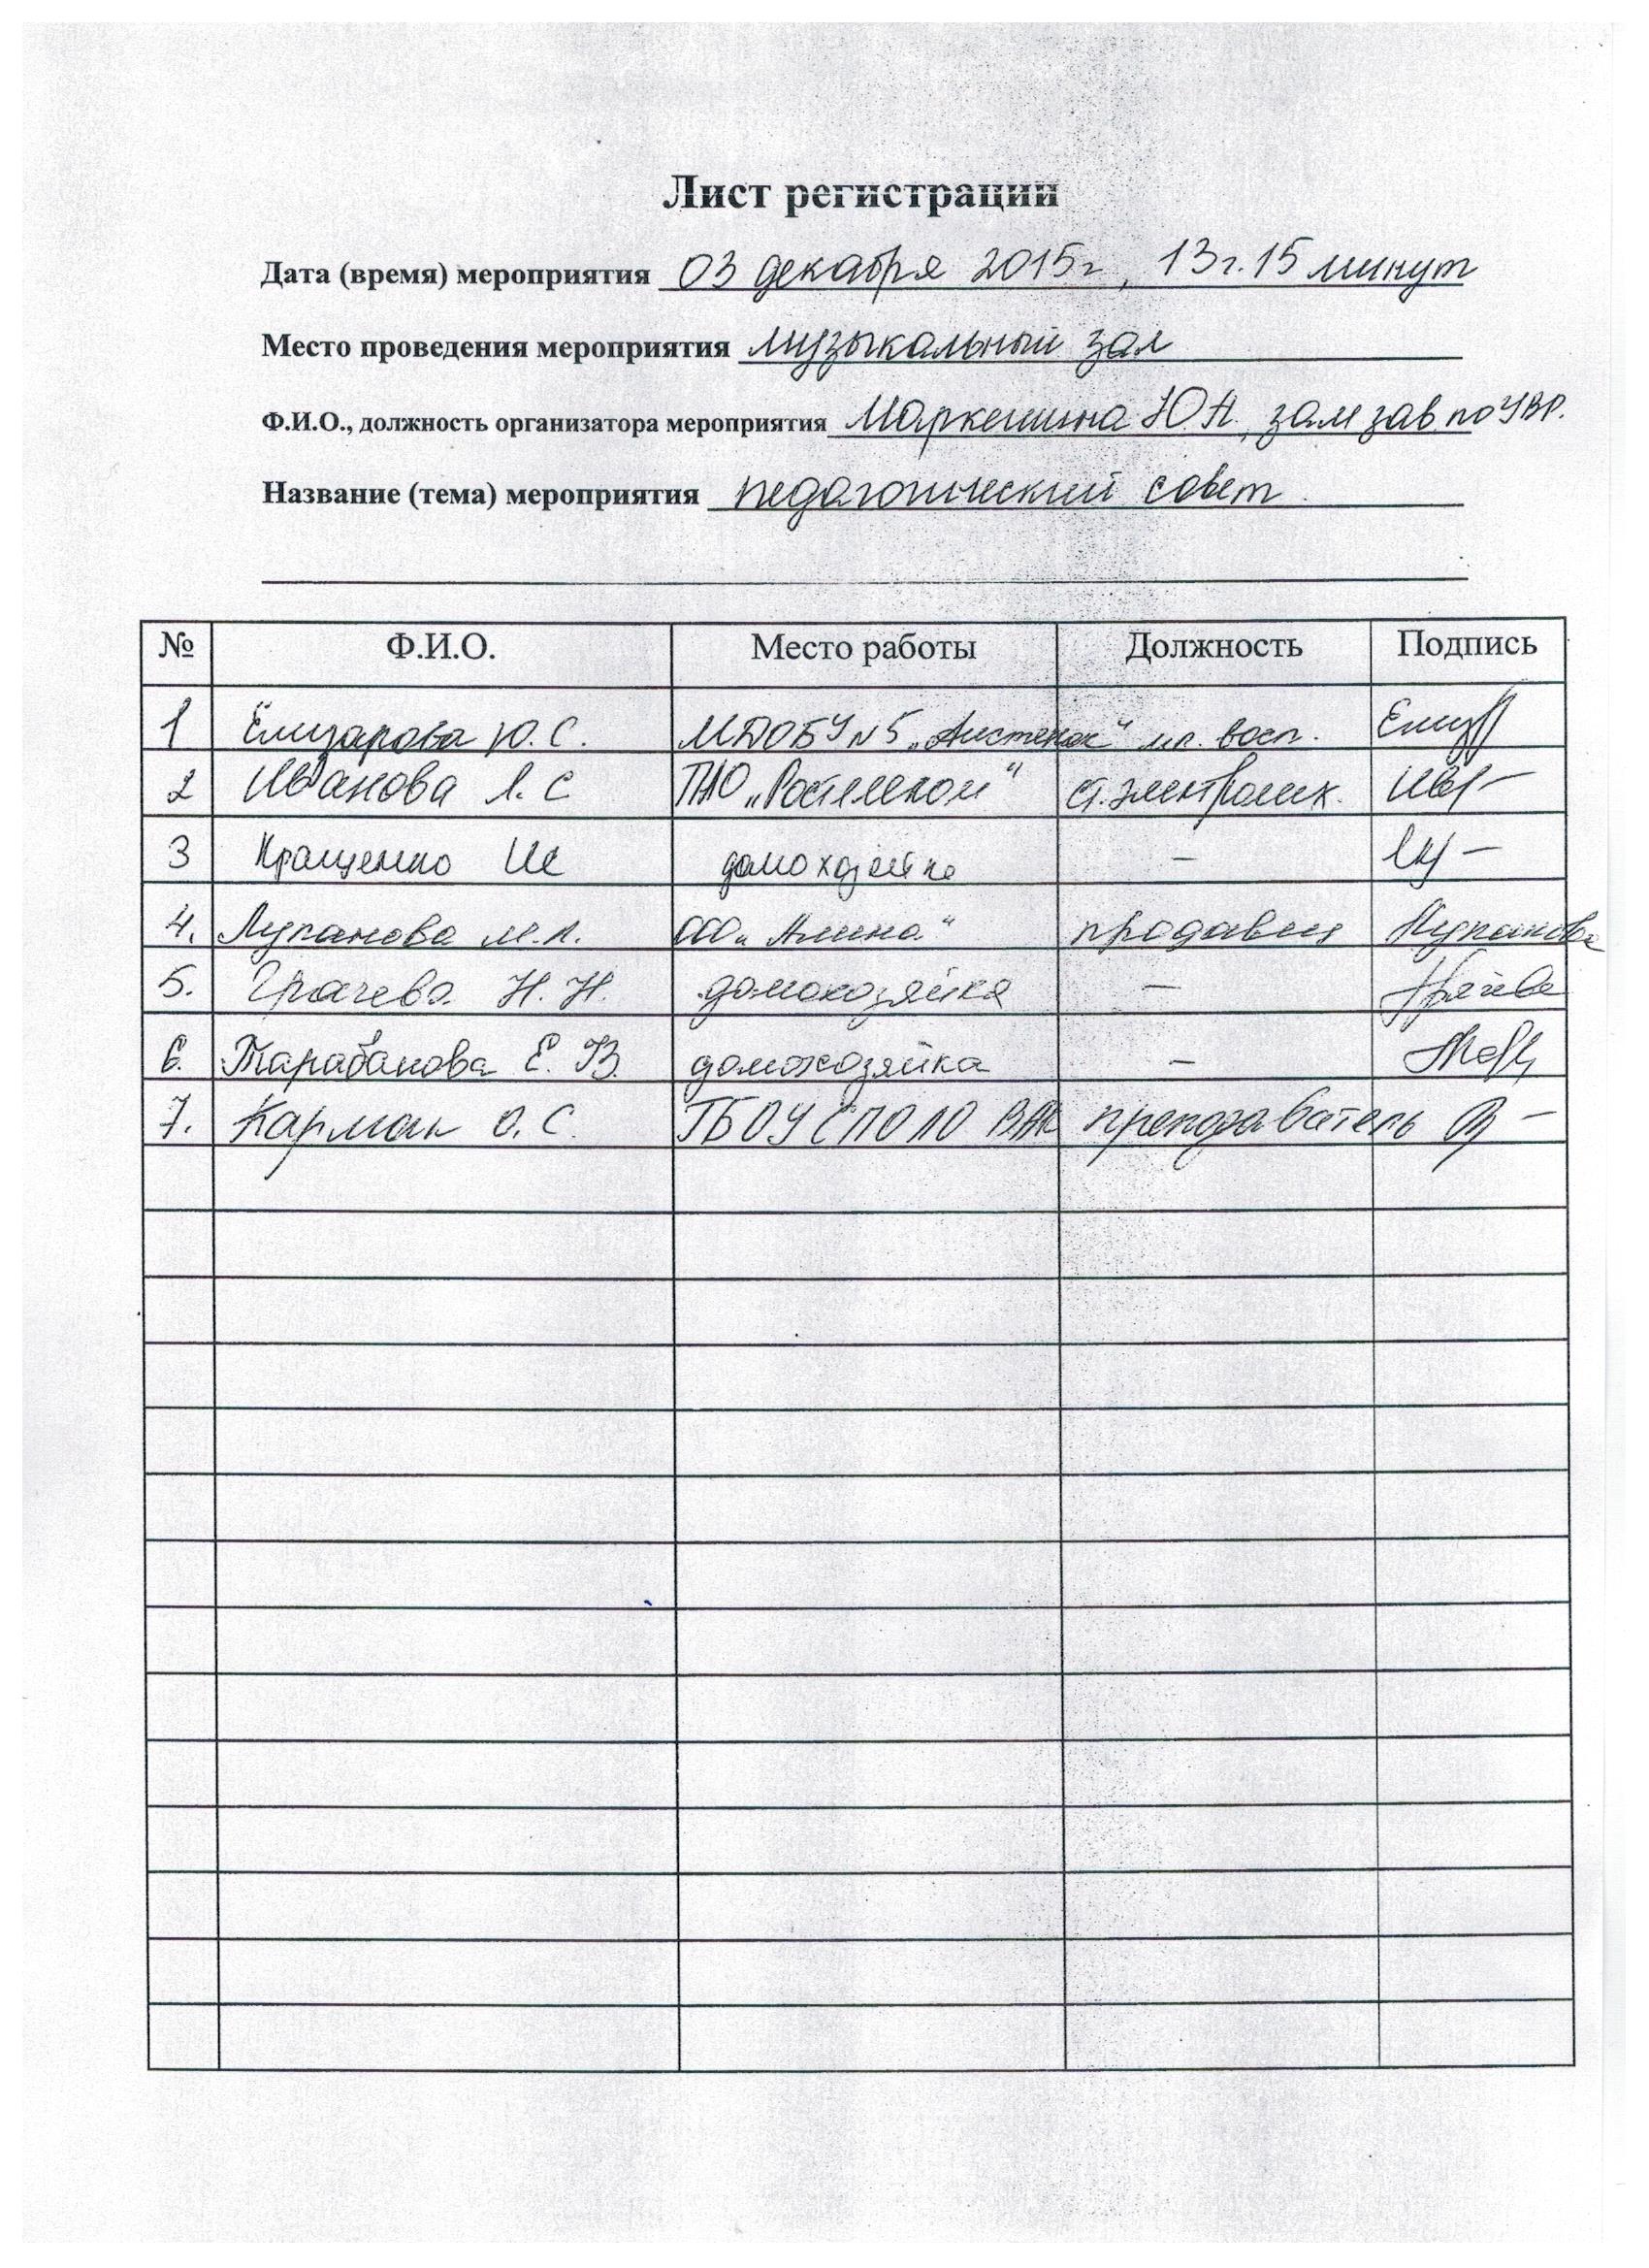 Лист регистрации
Дата (время) мероприятия 03 декабря 2015г, 13г.15 минут
Место проведения мероприятия музыкальный зал
Ф.И.О., должность организатора мероприятия Маркешина Ю.А., зам зав. по УВР.
Название (тема) мероприятия педагогический совет.
№ Ф.И.О. Место работы Должность Подпись
1 Елизарова Ю.С. МДОБУ №5 „Аистенок“ мл. восп.
2 Иванова Л.С ПАО „Ростелеком“ ст. электромех.
3 Кращенко домохозяйка –
4. Лупанова М.А. ООО „Алина“ продавец Лупанова
5. Грачева Н.Н. домохозяйка – Грачева
6. Тарабанова Е.В. домохозяйка –
7. Карман О.С. ГБОУ СПО ЛО преподаватель